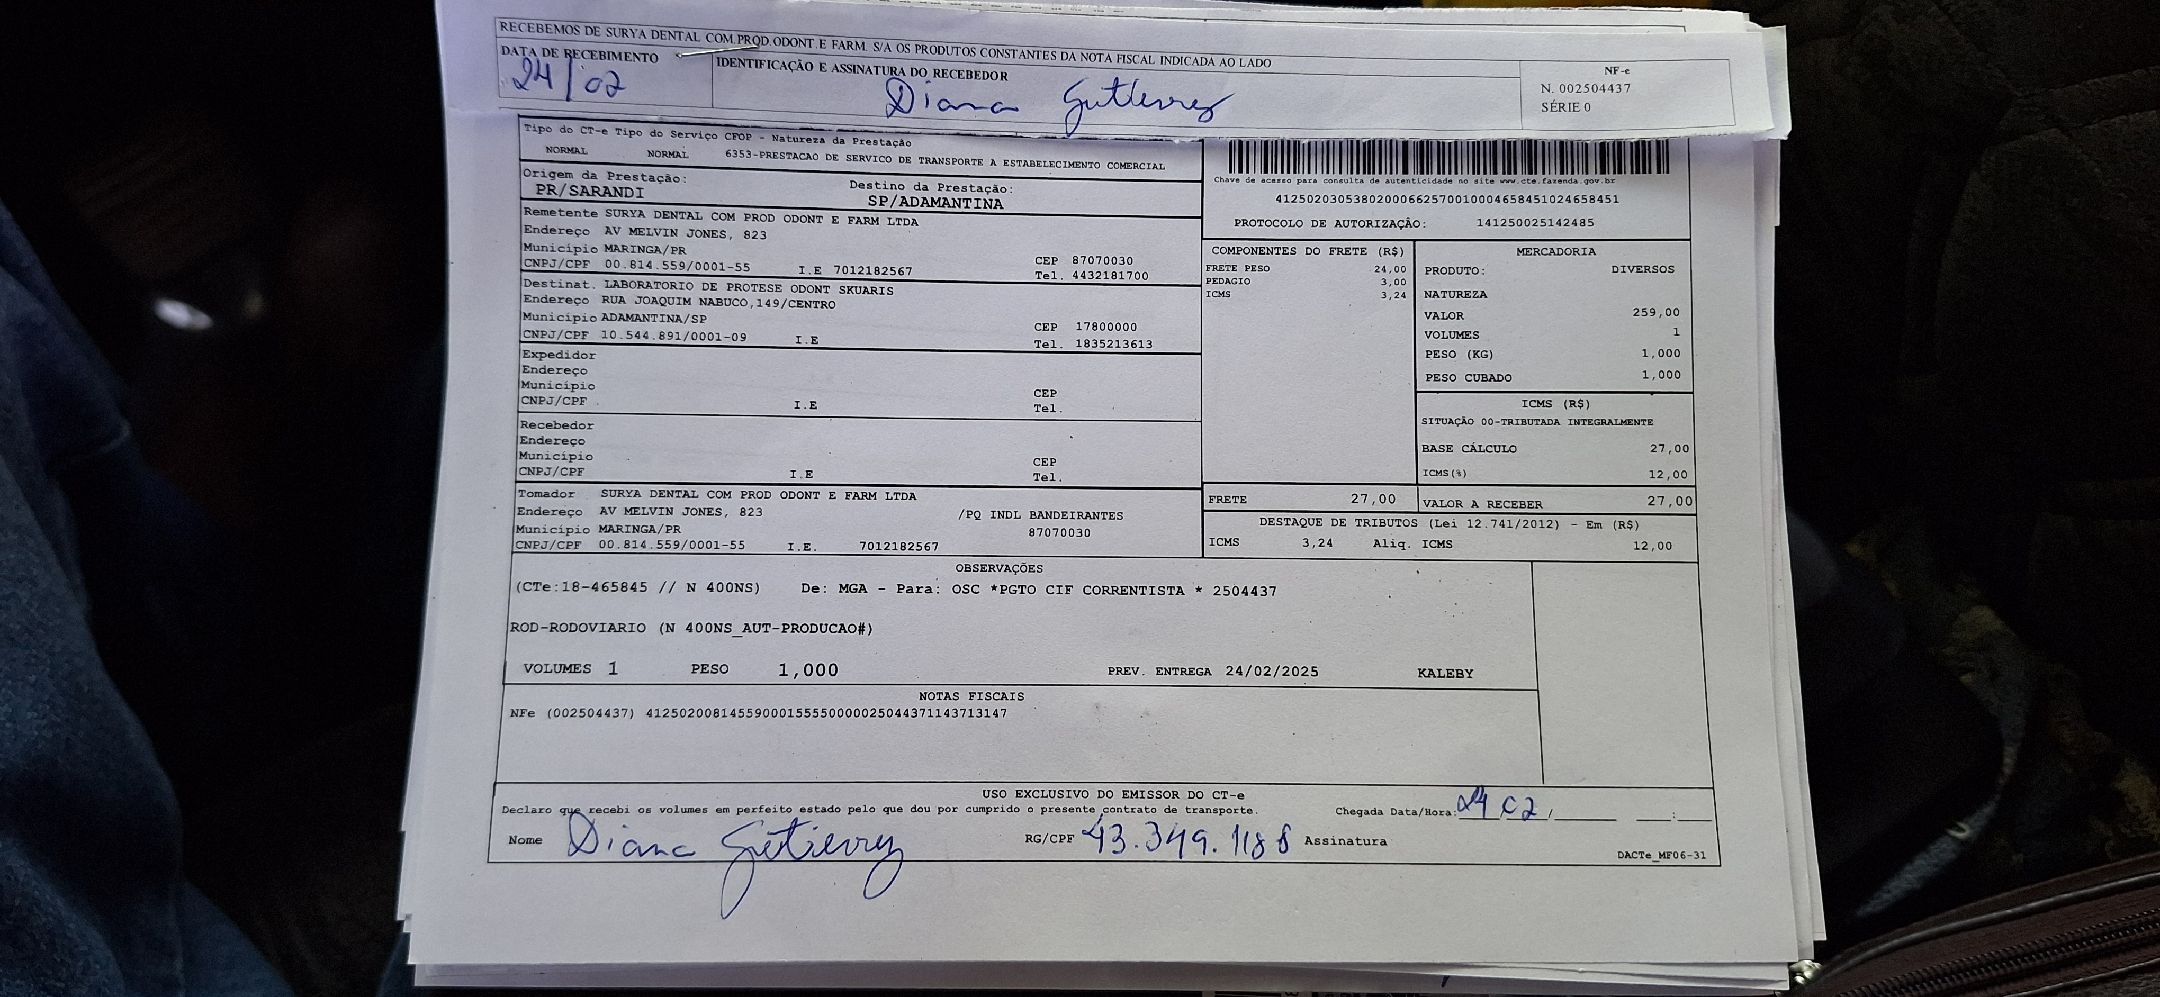 RECEBEMOS DE SURYA DENTAL COM.PROD.ODONT.E FARM. S/A OS PRODUTOS CONSTANTES DA NOTA FISCAL INDICADA AO LADO
DATA DE RECEBIMENTO IDENTIFICAÇÃO E ASSINATURA DO RECEBEDOR
24/02 Diana Gutierrez
NF-e
N. 002504437
SÉRIE 0
Tipo do CT-e Tipo do Serviço CFOP - Natureza da Prestação
NORMAL NORMAL 6353-PRESTACAO DE SERVICO DE TRANSPORTE A ESTABELECIMENTO COMERCIAL
Origem da Prestação: Destino da Prestação:
PR/SARANDI SP/ADAMANTINA
Remetente SURYA DENTAL COM PROD ODONT E FARM LTDA
Endereço AV MELVIN JONES, 823
Município MARINGA/PR CEP 87070030
CNPJ/CPF 00.814.559/0001-55 I.E 7012182567 Tel. 4432181700
Destinat. LABORATORIO DE PROTESE ODONT SKUARIS
Endereço RUA JOAQUIM NABUCO,149/CENTRO
Município ADAMANTINA/SP CEP 17800000
CNPJ/CPF 10.544.891/0001-09 I.E Tel. 1835213613
Expedidor
Endereço
Município CEP
CNPJ/CPF I.E Tel.
Recebedor
Endereço
Município CEP
CNPJ/CPF I.E Tel.
Tomador SURYA DENTAL COM PROD ODONT E FARM LTDA
Endereço AV MELVIN JONES, 823 /PQ INDL BANDEIRANTES
Município MARINGA/PR 87070030
CNPJ/CPF 00.814.559/0001-55 I.E. 7012182567
Chave de acesso para consulta de autenticidade no site www.cte.fazenda.gov.br
41250203053802000662570010004658451024658451
PROTOCOLO DE AUTORIZAÇÃO: 141250025142485
COMPONENTES DO FRETE (R$)
FRETE PESO 24,00
PEDAGIO 3,00
ICMS 3,24
MERCADORIA
PRODUTO: DIVERSOS
NATUREZA
VALOR 259,00
VOLUMES 1
PESO (KG) 1,000
PESO CUBADO 1,000
ICMS (R$)
SITUAÇÃO 00-TRIBUTADA INTEGRALMENTE
BASE CÁLCULO 27,00
ICMS(%) 12,00
FRETE 27,00 VALOR A RECEBER 27,00
DESTAQUE DE TRIBUTOS (Lei 12.741/2012) - Em (R$)
ICMS 3,24 Aliq. ICMS 12,00
OBSERVAÇÕES
(CTe:18-465845 // N 400NS) De: MGA - Para: OSC *PGTO CIF CORRENTISTA * 2504437
ROD-RODOVIARIO (N 400NS_AUT-PRODUCAO#)
VOLUMES 1 PESO 1,000 PREV. ENTREGA 24/02/2025 KALEBY
NOTAS FISCAIS
NFe (002504437) 41250200814559000155550000025044371143713147
USO EXCLUSIVO DO EMISSOR DO CT-e
Declaro que recebi os volumes em perfeito estado pelo que dou por cumprido o presente contrato de transporte. Chegada Data/Hora: 24 02
Nome Diana Gutierrez RG/CPF 43.349.118 8 Assinatura
DACTe_MF06-31